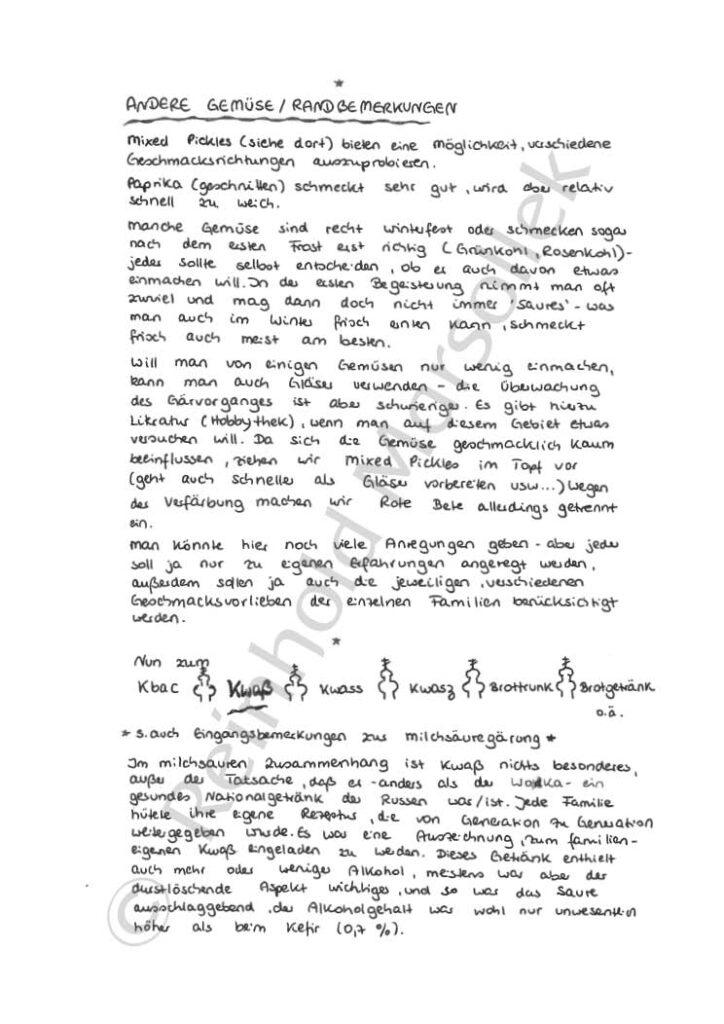 *
ANDERE GEMÜSE / RANDBEMERKUNGEN
Mixed Pickles (siehe dort) bieten eine Möglichkeit, verschiedene
Geschmacksrichtungen auszuprobieren.
Paprika (geschnitten) schmeckt sehr gut, wird aber relativ
schnell zu weich.
Manche Gemüse sind recht winterfest oder schmecken sogar
nach dem ersten Frost erst richtig (Grünkohl, Rosenkohl) -
jeder sollte selbst entscheiden, ob er auch davon etwas
einmachen will. In der ersten Begeisterung nimmt man oft
zuviel und mag dann doch nicht immer 'Saures' - was
man auch im Winter frisch ernten kann, schmeckt
frisch auch meist am besten.
Will man von einigen Gemüsen nur wenig einmachen,
kann man auch Gläser verwenden - die Überwachung
des Gärvorganges ist aber schwieriger. Es gibt hierzu
Literatur (Hobbythek), wenn man auf diesem Gebiet etwas
versuchen will. Da sich die Gemüse geschmacklich kaum
beeinflussen, ziehen wir Mixed Pickles im Topf vor
(geht auch schneller als Gläser vorbereiten usw...) Wegen
der Verfärbung machen wir Rote Bete allerdings getrennt
ein.
Man könnte hier noch viele Anregungen geben - aber jeder
soll ja nur zu eigenen Erfahrungen angeregt werden,
außerdem sollen ja auch die jeweiligen, verschiedenen
Geschmacksvorlieben der einzelnen Familien berücksichtigt
werden.
*
Nun zum
Kbac Kwaß Kwass Kwasz Brottrunk Brotgetränk
o.ä.
* s. auch Eingangsbemerkungen zur Milchsäuregärung *
Im milchsauren Zusammenhang ist Kwaß nichts besonderes,
außer der Tatsache, daß er - anders als der Wodka - ein
gesundes Nationalgetränk der Russen war/ist. Jede Familie
hütete ihre eigene Rezeptur, die von Generation zu Generation
weitergegeben wurde. Es war eine Auszeichnung, zum familien-
eigenen Kwaß eingeladen zu werden. Dieses Getränk enthielt
auch mehr oder weniger Alkohol, meistens war aber der
durstlöschende Aspekt wichtiger, und so war das Saure
ausschlaggebend, der Alkoholgehalt war wohl nur unwesentlich
höher als beim Kefir (0,7 %).
© Reinhold Marsollek